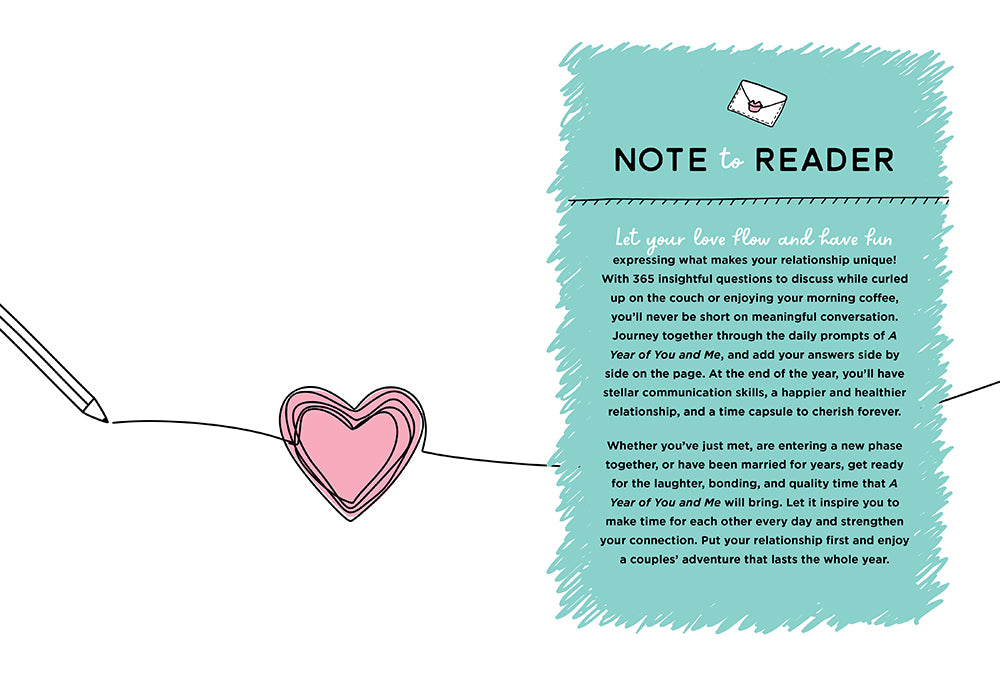 NOTE to READER
Let your love flow and have fun
expressing what makes your relationship unique!
With 365 insightful questions to discuss while curled
up on the couch or enjoying your morning coffee,
you’ll never be short on meaningful conversation.
Journey together through the daily prompts of A
Year of You and Me, and add your answers side by
side on the page. At the end of the year, you’ll have
stellar communication skills, a happier and healthier
relationship, and a time capsule to cherish forever.
Whether you’ve just met, are entering a new phase
together, or have been married for years, get ready
for the laughter, bonding, and quality time that A
Year of You and Me will bring. Let it inspire you to
make time for each other every day and strengthen
your connection. Put your relationship first and enjoy
a couples’ adventure that lasts the whole year.